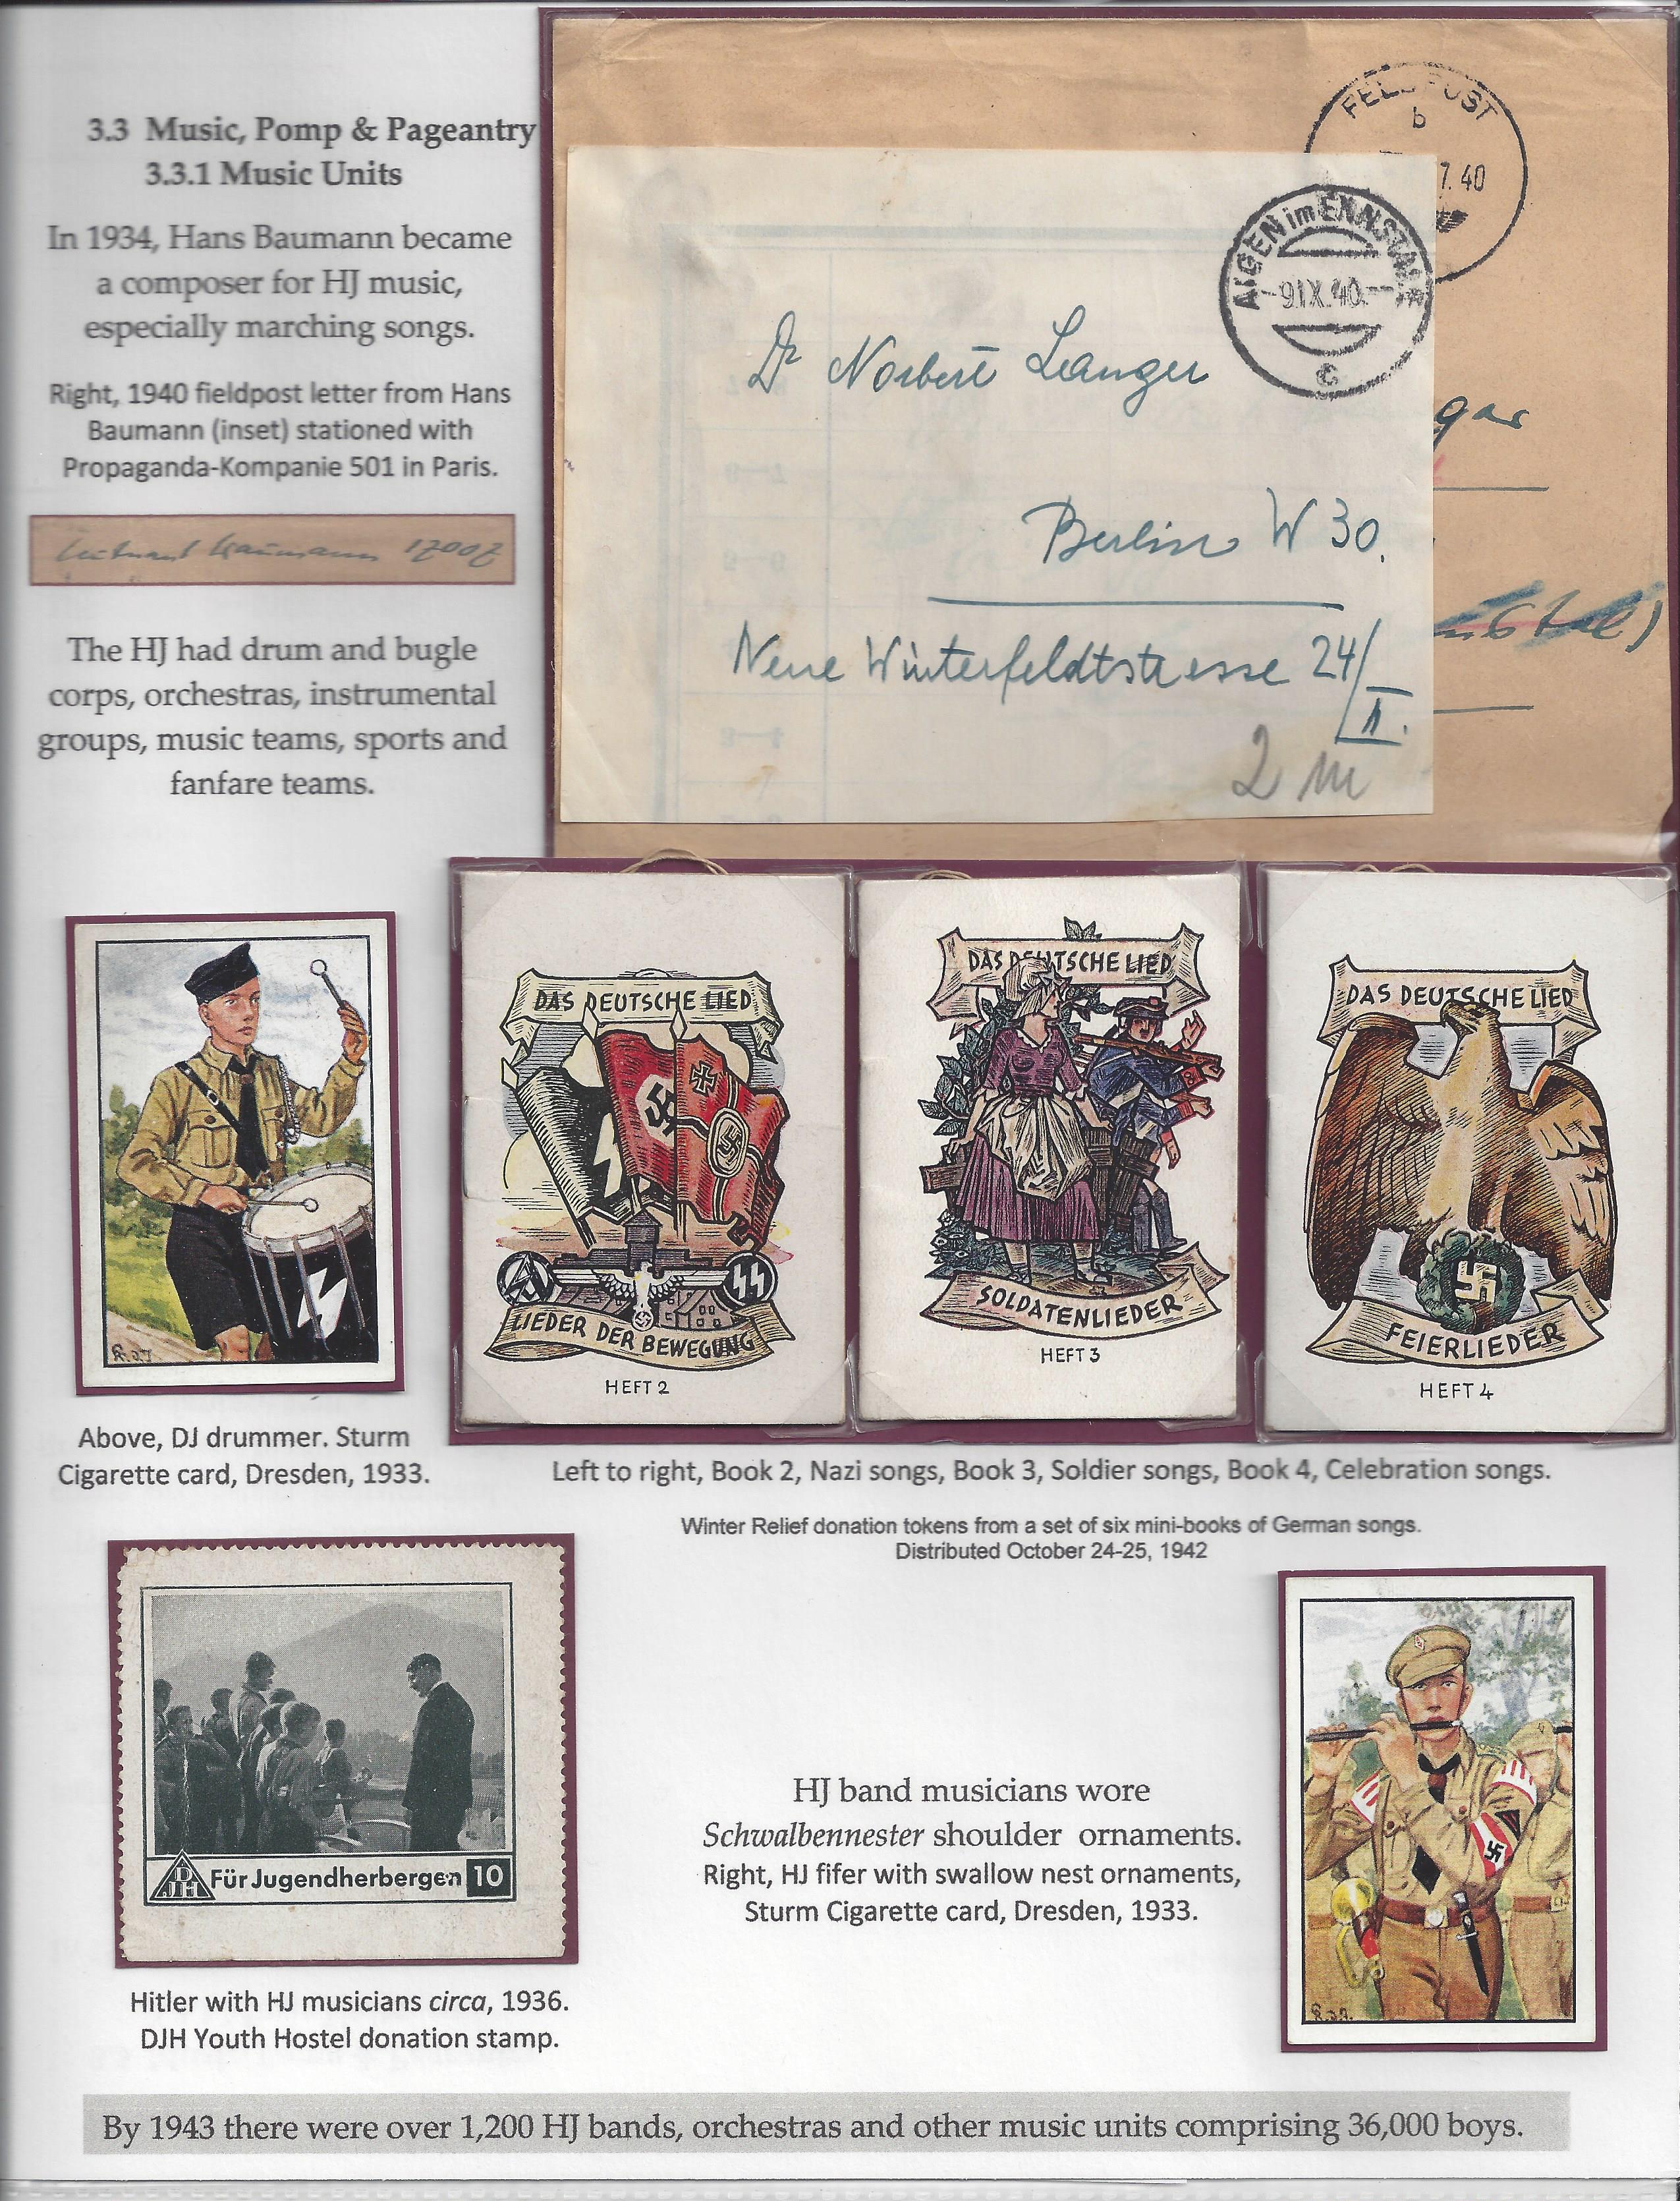 3.3 Music, Pomp & Pageantry
3.3.1 Music Units
In 1934, Hans Baumann became
a composer for HJ music,
especially marching songs.
Right, 1940 fieldpost letter from Hans
Baumann (inset) stationed with
Propaganda-Kompanie 501 in Paris.
Leutnant Baumann 17007
The HJ had drum and bugle
corps, orchestras, instrumental
groups, music teams, sports and
fanfare teams.
FELDPOST
b
7.40
AIGEN im ENNSTAL
-9.IX.40.--
c
Dr Norbert Langer
Berlin W 30.
Neue Winterfeldtstrasse 24/
II.
2 m
DAS DEUTSCHE LIED
LIEDER DER BEWEGUNG
HEFT 2
DAS DEUTSCHE LIED
SOLDATENLIEDER
HEFT 3
DAS DEUTSCHE LIED
FEIERLIEDER
HEFT 4
Above, DJ drummer. Sturm
Cigarette card, Dresden, 1933.
Left to right, Book 2, Nazi songs, Book 3, Soldier songs, Book 4, Celebration songs.
Winter Relief donation tokens from a set of six mini-books of German songs.
Distributed October 24-25, 1942
DJH Für Jugendherbergen 10
Hitler with HJ musicians circa, 1936.
DJH Youth Hostel donation stamp.
HJ band musicians wore
Schwalbennester shoulder ornaments.
Right, HJ fifer with swallow nest ornaments,
Sturm Cigarette card, Dresden, 1933.
By 1943 there were over 1,200 HJ bands, orchestras and other music units comprising 36,000 boys.